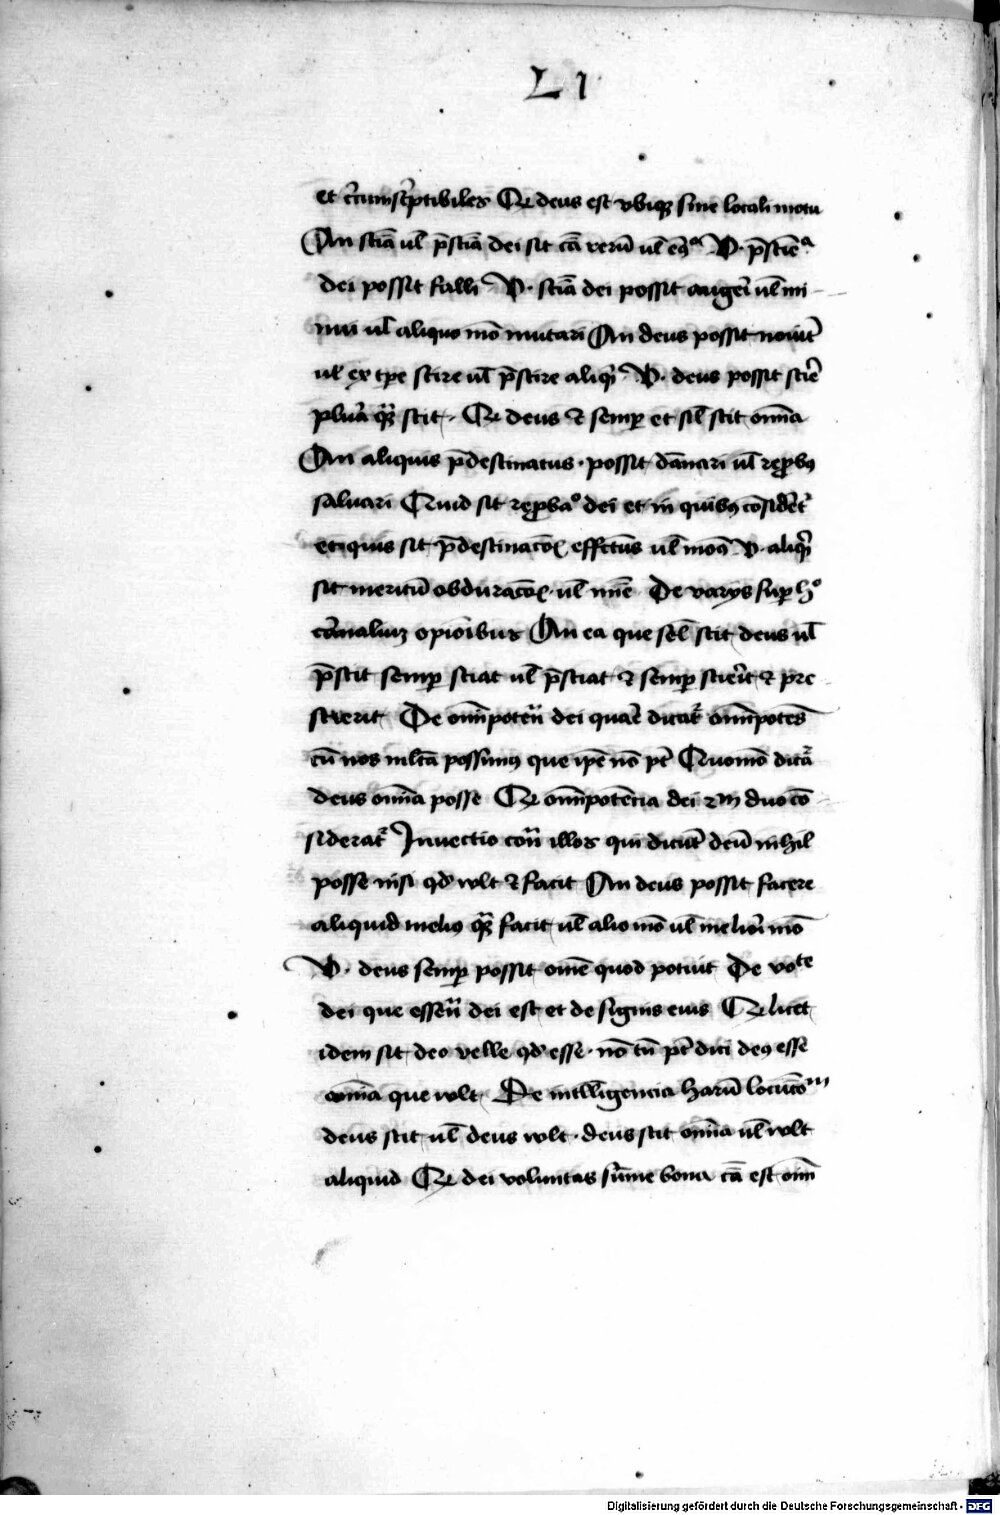 L 1
et cͥcumscͥptibiles Qꝛ deus est vbiqꝫ sine locali motu
An sciā ul̄ p̄sciā dei sit cā rerū ul̄ eͦꝯͣ V. p̄scieͣ
dei possit falli V. sciā dei possit augeri ul̄ mi
nui ul̄ aliquo mō mutari An deus possit noūit̄
ul̄ ex tꝑe scire ul̄ p̄scire aliqͥ V. deus possit scir̄e
plura qͣꝫ scit Qꝛ deus ⁊ semꝑ et sil̄ scit om̄ia
An aliquis p̄destinatus possit dānari ul̄ reꝓbꝯ
saluari Quid sit reꝓbaͦ dei et in quibꝯ cōsider̄et
et quis sit p̄destinacōꝭ effectus ul̄ moꝯ V. aliqͥ
sit meritū obduracōꝭ ul̄ mīe De varijs suꝑ hͦ
carnaliuꝫ opiōibus An ea que sel̄ scit deus ul̄
p̄scit semꝑ sciat ul̄ p̄sciat ⁊ semꝑ scierit ⁊ pre
scierit De om̄ipotēͣ dei quar̄e dicat̄ om̄ipotēs
cū nos ml̄ta possimꝯ que ip̄e nō pt̄ Quomō dicat̄
deus om̄ia posse Qꝛ om̄ipotēcia dei ẜm duo cō
siderat̄ Inuectio conͣ illos qui dicūt deū nihil
posse nisi qd̓ wlt ⁊ facit An deus possit facere
aliquid meliꝯ qͣꝫ facit ul̄ alio mō ul̄ meliori mō
V. deus semꝑ possit om̄e quod potuit De voᵗᵉ
dei que essēͣ dei est et de signis eius Qꝛ licet
idem sit deo velle qd̓ esse nō tn̄ pt̄ dici deꝯ esse
om̄ia que wlt De intelligencia harū locucōᵐ
deus scit ul̄ deus wlt deus scit om̄ia ul̄ wlt
aliquid Qꝛ dei voluntas sūme bona cā est om̄
Digitalisierung gefördert durch die Deutsche Forschungsgemeinschaft - DFG